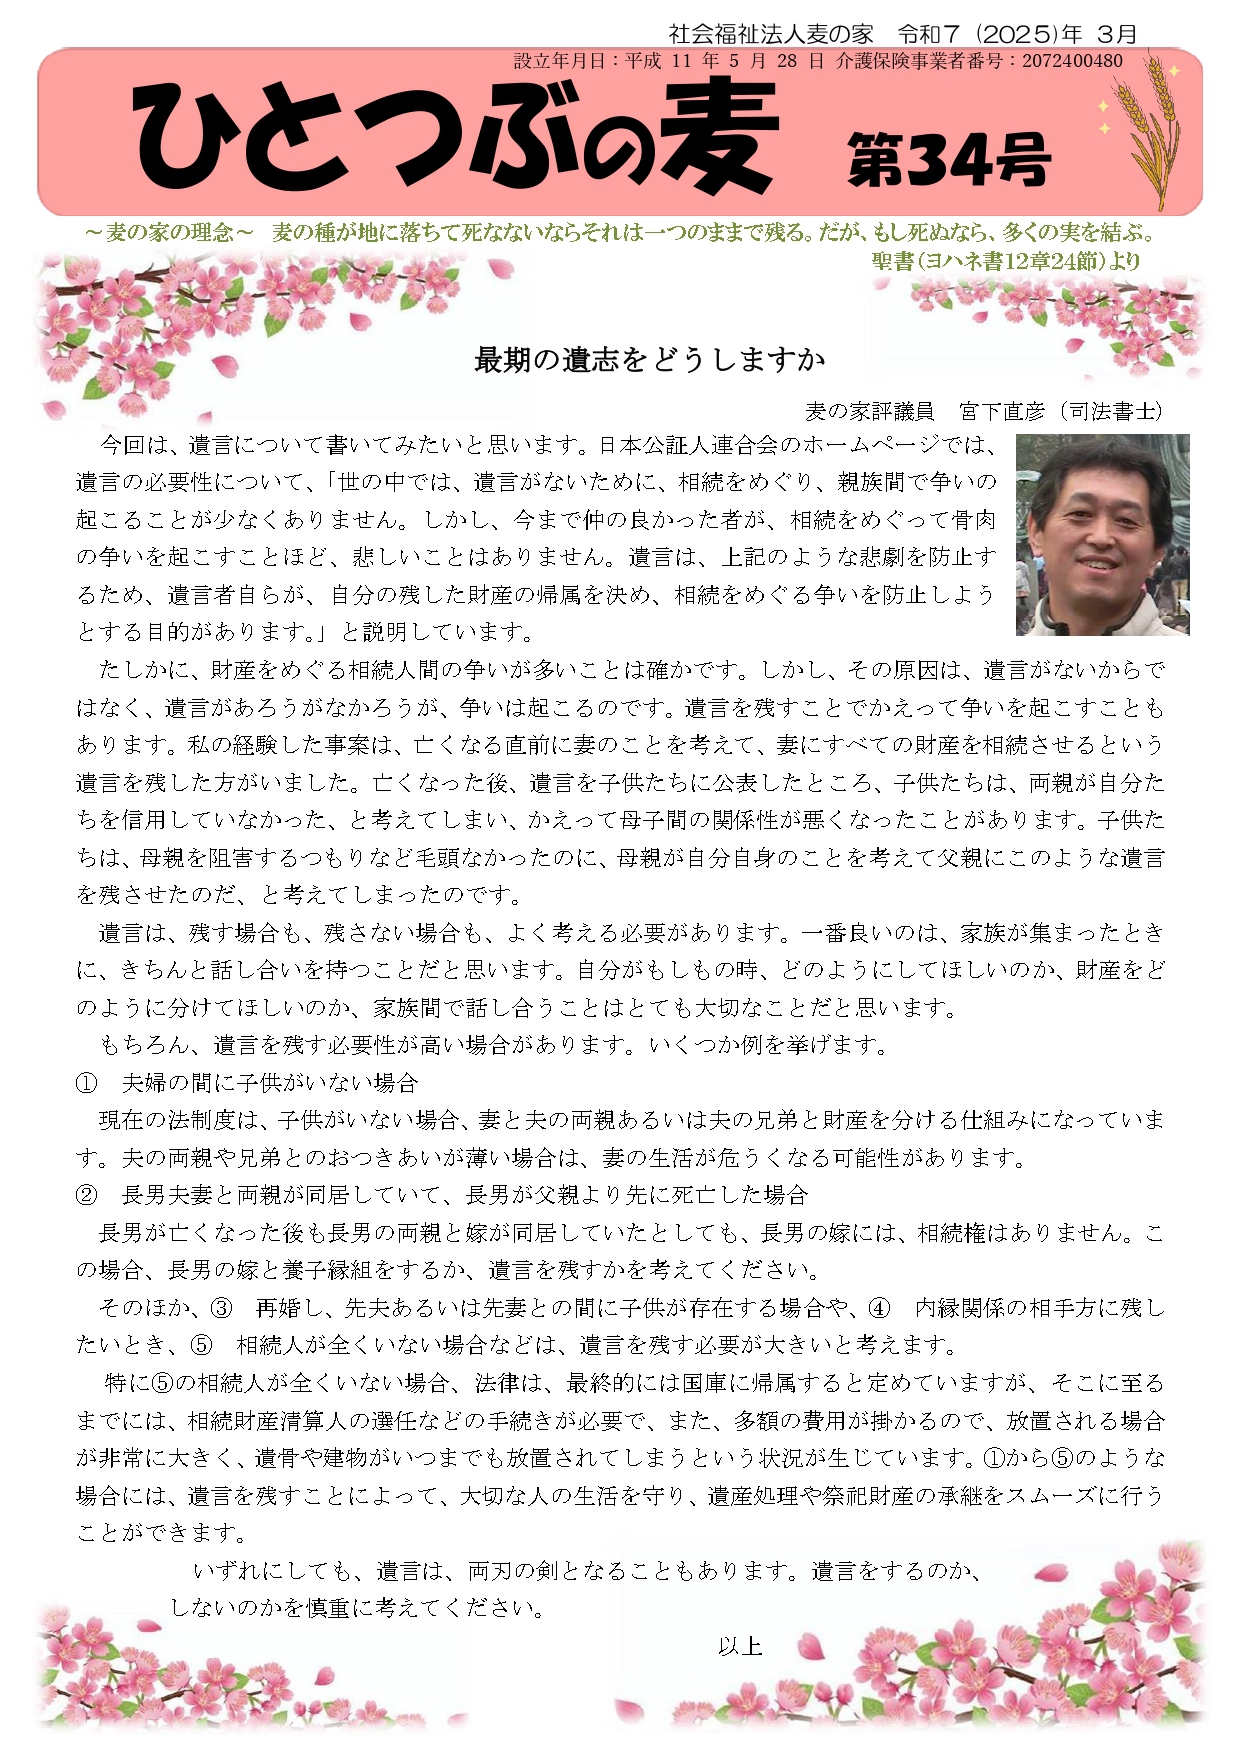 社会福祉法人麦の家　令和７（2025）年 ３月
設立年月日：平成 11 年 5 月 28 日 介護保険事業者番号：2072400480
ひとつぶの麦　第34号
～麦の家の理念～　麦の種が地に落ちて死なないならそれは一つのままで残る。だが、もし死ぬなら、多くの実を結ぶ。
聖書（ヨハネ書12章24節）より
最期の遺志をどうしますか
麦の家評議員　宮下直彦（司法書士）
今回は、遺言について書いてみたいと思います。日本公証人連合会のホームページでは、
遺言の必要性について、「世の中では、遺言がないために、相続をめぐり、親族間で争いの
起こることが少なくありません。しかし、今まで仲の良かった者が、相続をめぐって骨肉
の争いを起こすことほど、悲しいことはありません。遺言は、上記のような悲劇を防止す
るため、遺言者自らが、自分の残した財産の帰属を決め、相続をめぐる争いを防止しよう
とする目的があります。」と説明しています。
たしかに、財産をめぐる相続人間の争いが多いことは確かです。しかし、その原因は、遺言がないからで
はなく、遺言があろうがなかろうが、争いは起こるのです。遺言を残すことでかえって争いを起こすことも
あります。私の経験した事案は、亡くなる直前に妻のことを考えて、妻にすべての財産を相続させるという
遺言を残した方がいました。亡くなった後、遺言を子供たちに公表したところ、子供たちは、両親が自分た
ちを信用していなかった、と考えてしまい、かえって母子間の関係性が悪くなったことがあります。子供た
ちは、母親を阻害するつもりなど毛頭なかったのに、母親が自分自身のことを考えて父親にこのような遺言
を残させたのだ、と考えてしまったのです。
遺言は、残す場合も、残さない場合も、よく考える必要があります。一番良いのは、家族が集まったとき
に、きちんと話し合いを持つことだと思います。自分がもしもの時、どのようにしてほしいのか、財産をど
のように分けてほしいのか、家族間で話し合うことはとても大切なことだと思います。
もちろん、遺言を残す必要性が高い場合があります。いくつか例を挙げます。
①　夫婦の間に子供がいない場合
現在の法制度は、子供がいない場合、妻と夫の両親あるいは夫の兄弟と財産を分ける仕組みになっていま
す。夫の両親や兄弟とのおつきあいが薄い場合は、妻の生活が危うくなる可能性があります。
②　長男夫妻と両親が同居していて、長男が父親より先に死亡した場合
長男が亡くなった後も長男の両親と嫁が同居していたとしても、長男の嫁には、相続権はありません。こ
の場合、長男の嫁と養子縁組をするか、遺言を残すかを考えてください。
そのほか、③　再婚し、先夫あるいは先妻との間に子供が存在する場合や、④　内縁関係の相手方に残し
たいとき、⑤　相続人が全くいない場合などは、遺言を残す必要が大きいと考えます。
特に⑤の相続人が全くいない場合、法律は、最終的には国庫に帰属すると定めていますが、そこに至る
までには、相続財産清算人の選任などの手続きが必要で、また、多額の費用が掛かるので、放置される場合
が非常に大きく、遺骨や建物がいつまでも放置されてしまうという状況が生じています。①から⑤のような
場合には、遺言を残すことによって、大切な人の生活を守り、遺産処理や祭祀財産の承継をスムーズに行う
ことができます。
いずれにしても、遺言は、両刃の剣となることもあります。遺言をするのか、
しないのかを慎重に考えてください。
以上